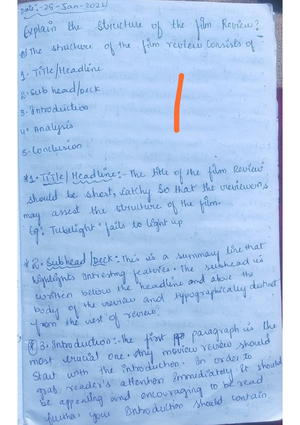 Date:-25-Jan-2021
Explain the Structure of the film Review?
The structure of the film review consists of
1. Title/Headline
2. Sub head/Deck
3. Introduction
4. Analysis
5. Conclusion
*1. Title/Headline:- The title of the film Review
should be short, catchy So that the viewers
may assest the structure of the film.
Eg: Tubelight fails to light up
*2. Subhead/Deck:- This is a summary line that
highlights intresting features. The subhead is
written below the headline and above the
body of the review and typographically distinct
from the rest of review.
3. Introduction:- The first paragraph is the
most crucial one. Any moview review should
start with the introduction. In order to
grab reader's attention immediately it should
be appealing and encouraging to be read
further. your Introduction should contain